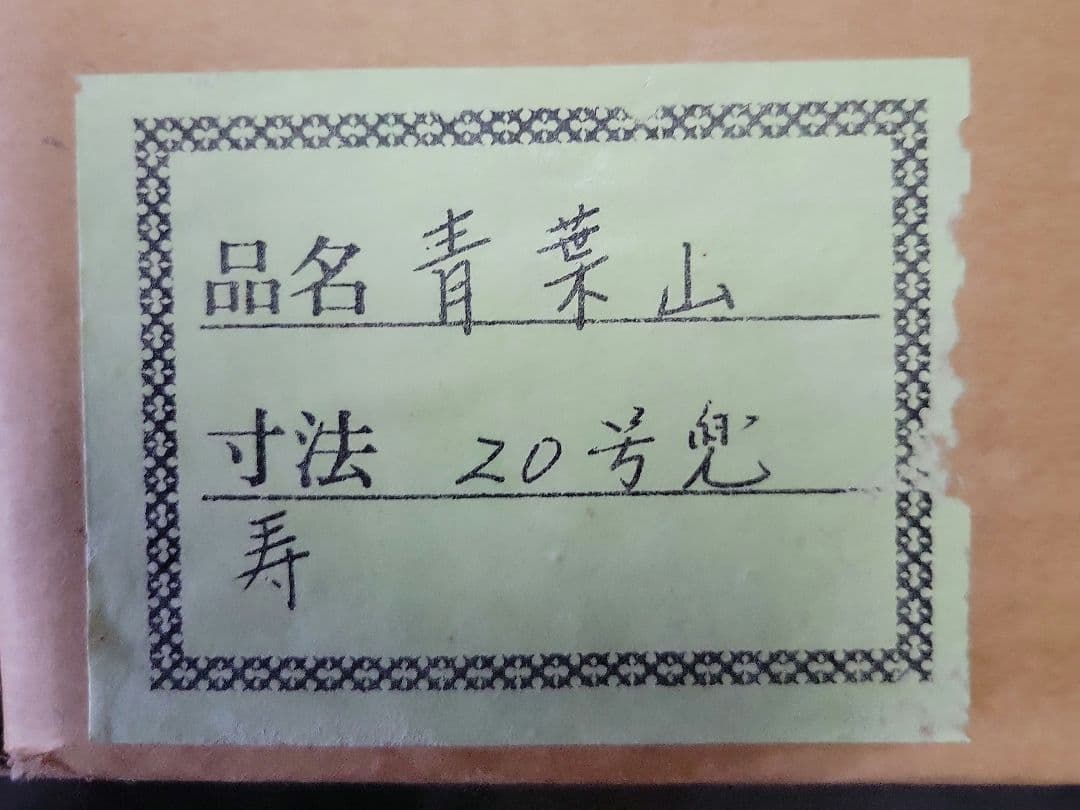 品名 青葉山
寸法 20号兜
寿